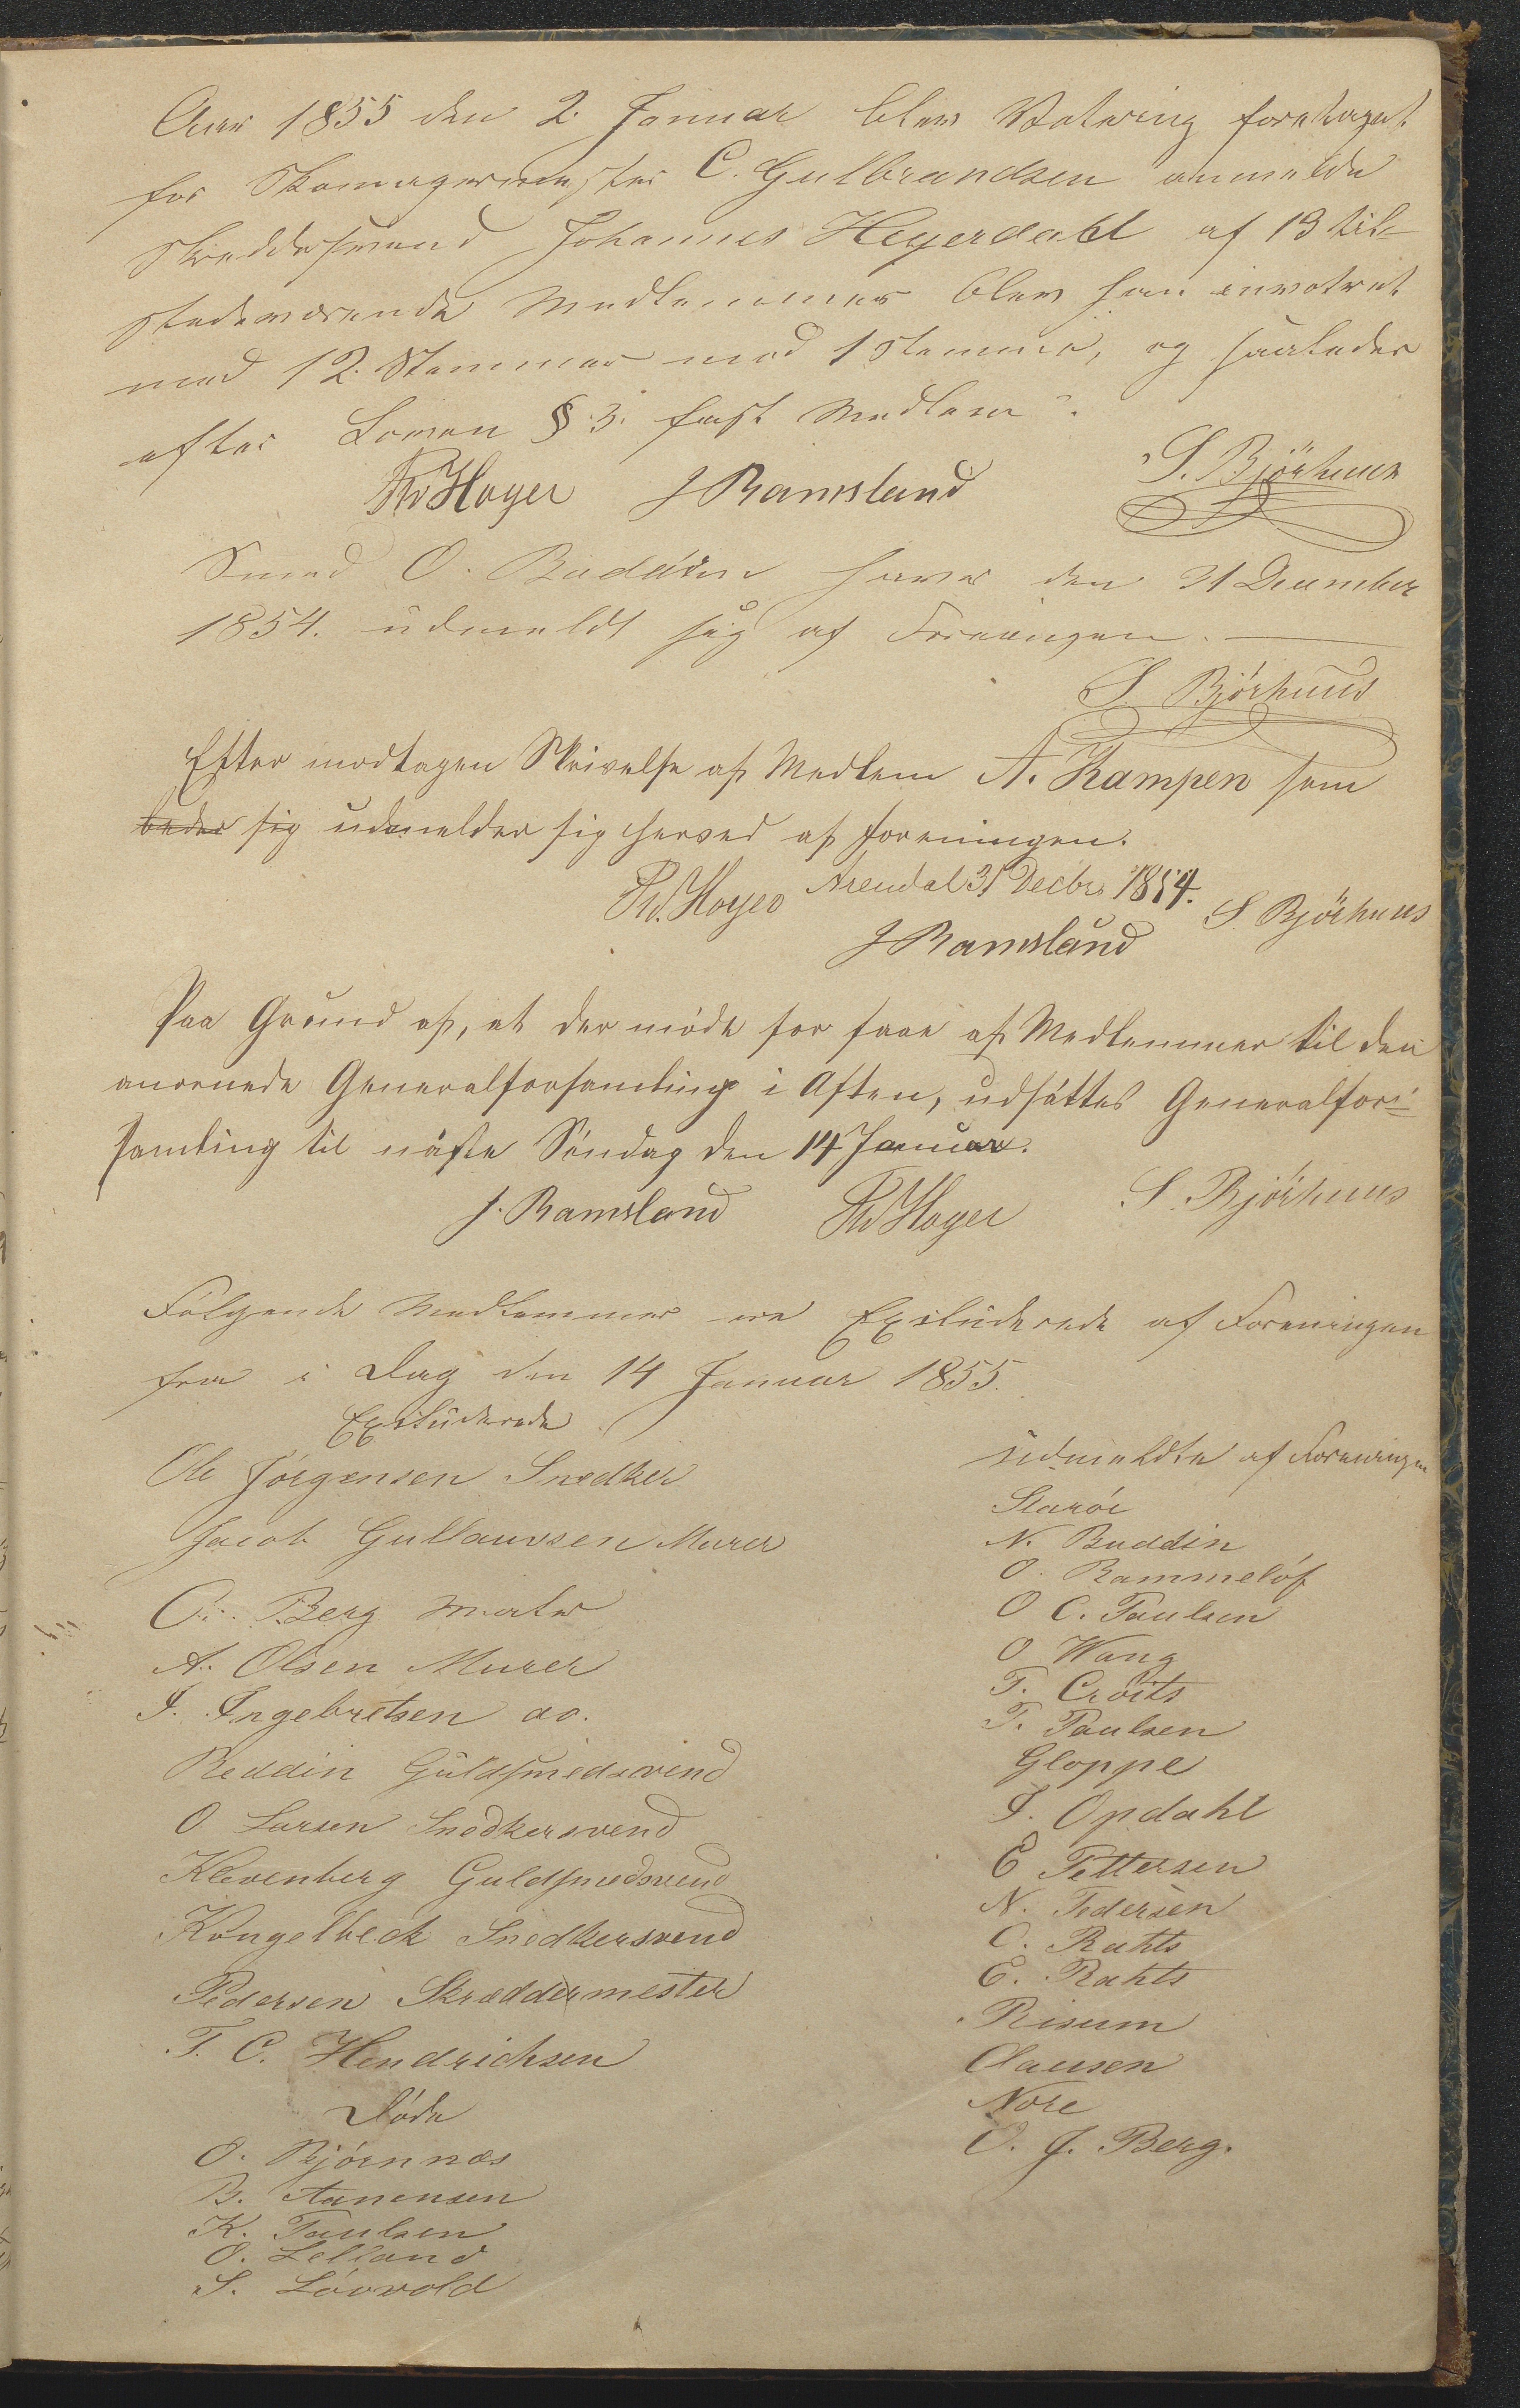 Aar 1855 den 2. Januar blev Votering foretaget
for Skomagermester C. Gulbrandsen anmeldte
Skreddersvend Johannes Heyerdahl af 13 til-
stedeværende Medlemmer blev han invoteret
med 12. Stemmer mod 1 stemme, og saaledes
efter Loven § 3. fast Medlem.
Th Høyer J Ramsland S. Björhuus
Smed O. Buddin haver den 31 December
1854. udmeldt sig af Foreningen.
S. Björhuus
Efter modtagen Skrivelse af Medlem A. Kampen som
beder sig udmelder sig herved af foreningen.
Arendal 31 Decbr. 1854.
Th. Høyer J Ramsland S. Björhuus
Paa Grund af, at der mødte for faae af Medlemmer til den
anornede Generalforsamling i Aften, udsättes Generalfor-
samling til näste Søndag den 14 Januar.
J. Ramsland Th Høyer S. Björhuus
Følgende Medlemmer ere Excluderede af Foreningen
fra i Dag den 14 Januar 1855.
Excluderede
Ole Jørgensen Snedker
Jacob Gullaussen Murer
C. Berg Maler
A. Olsen Murer
I. Ingebretsen do.
Reddin Guldsmedsvend
O Larsen Snedkersvend
Klevenberg Guldsmedsvend
Kongelbeck Snedkersvend
Pedersen Skræddermester
T. C. Hendrichsen
Døde
O. Bjørnnæs
B. Aanensen
K. Paulsen
O. Lelland
S. Løvvold
udmeldte af Foreningen
Starøe
N. Buddin
O. Rammeløf
O C. Paulsen
O Wang
F. Croits
T. Paulsen
Gloppe
I. Opdahl
E Pettersen
N. Pedersen
C. Rahts
E. Rahts
Risum
Clausen
Nore
O. J. Berg.